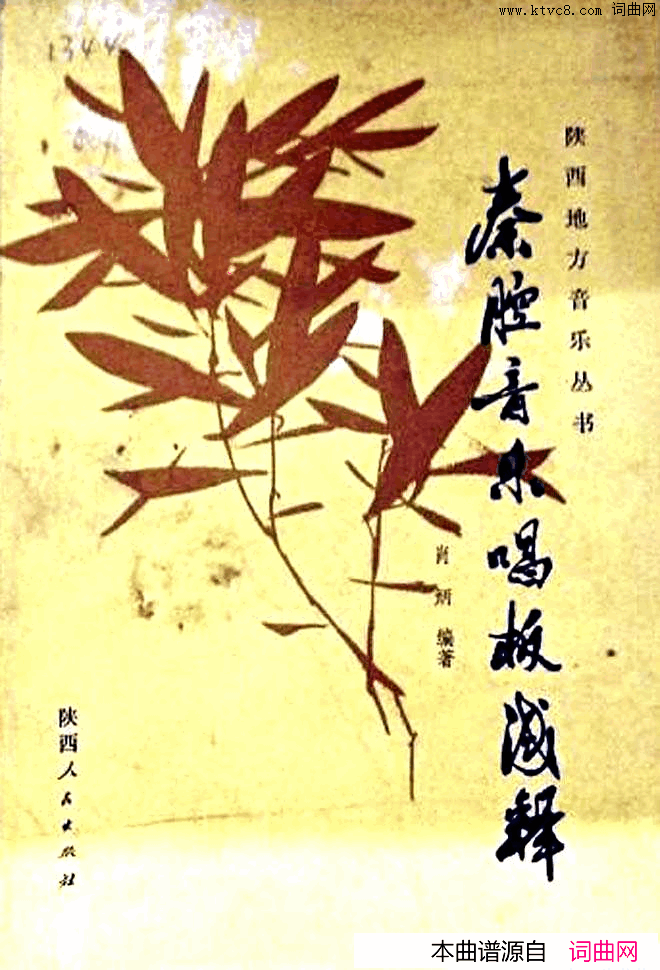 www.ktvc8.com 词曲网
1344
陕西地方音乐丛书
秦腔音乐唱板浅释
肖炳 编著
陕西人民出版社
本曲谱源自 词曲网